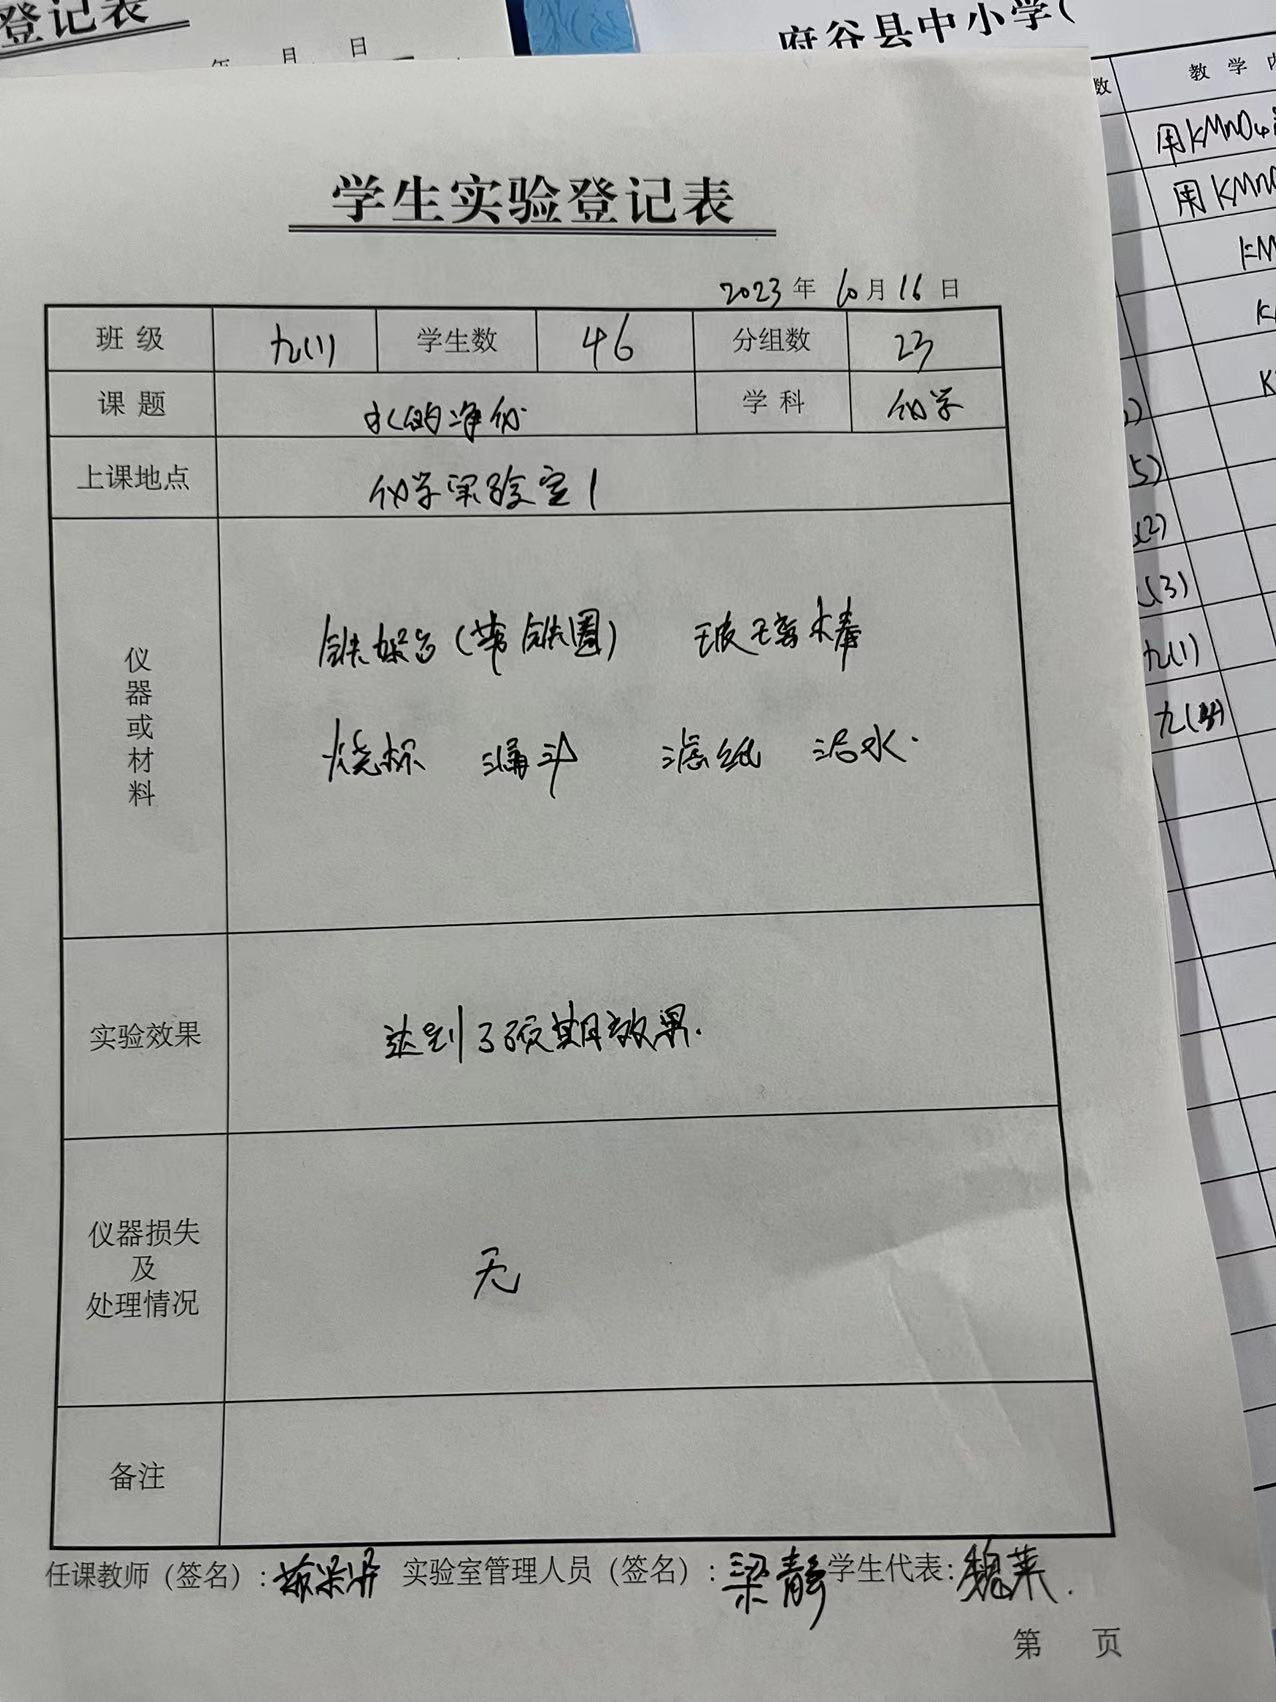 登记表
年 月 日
府谷县中小学(
数 教 学 内
用KMnO4
用KMnO
KM
K
K
5)
(2)
(3)
九(1)
九
学生实验登记表
2023 年 10 月 16 日
班 级 九(1) 学生数 46 分组数 23
课 题 水的净化 学 科 化学
上课地点 化学实验室1
仪器或材料
铁架台(带铁圈) 玻璃棒
烧杯 漏斗 滤纸 浊水.
实验效果 达到了预期效果.
仪器损失
及 无
处理情况
备注
任课教师（签名）: 实验室管理人员（签名）: 梁静 学生代表: 魏莱.
第 页